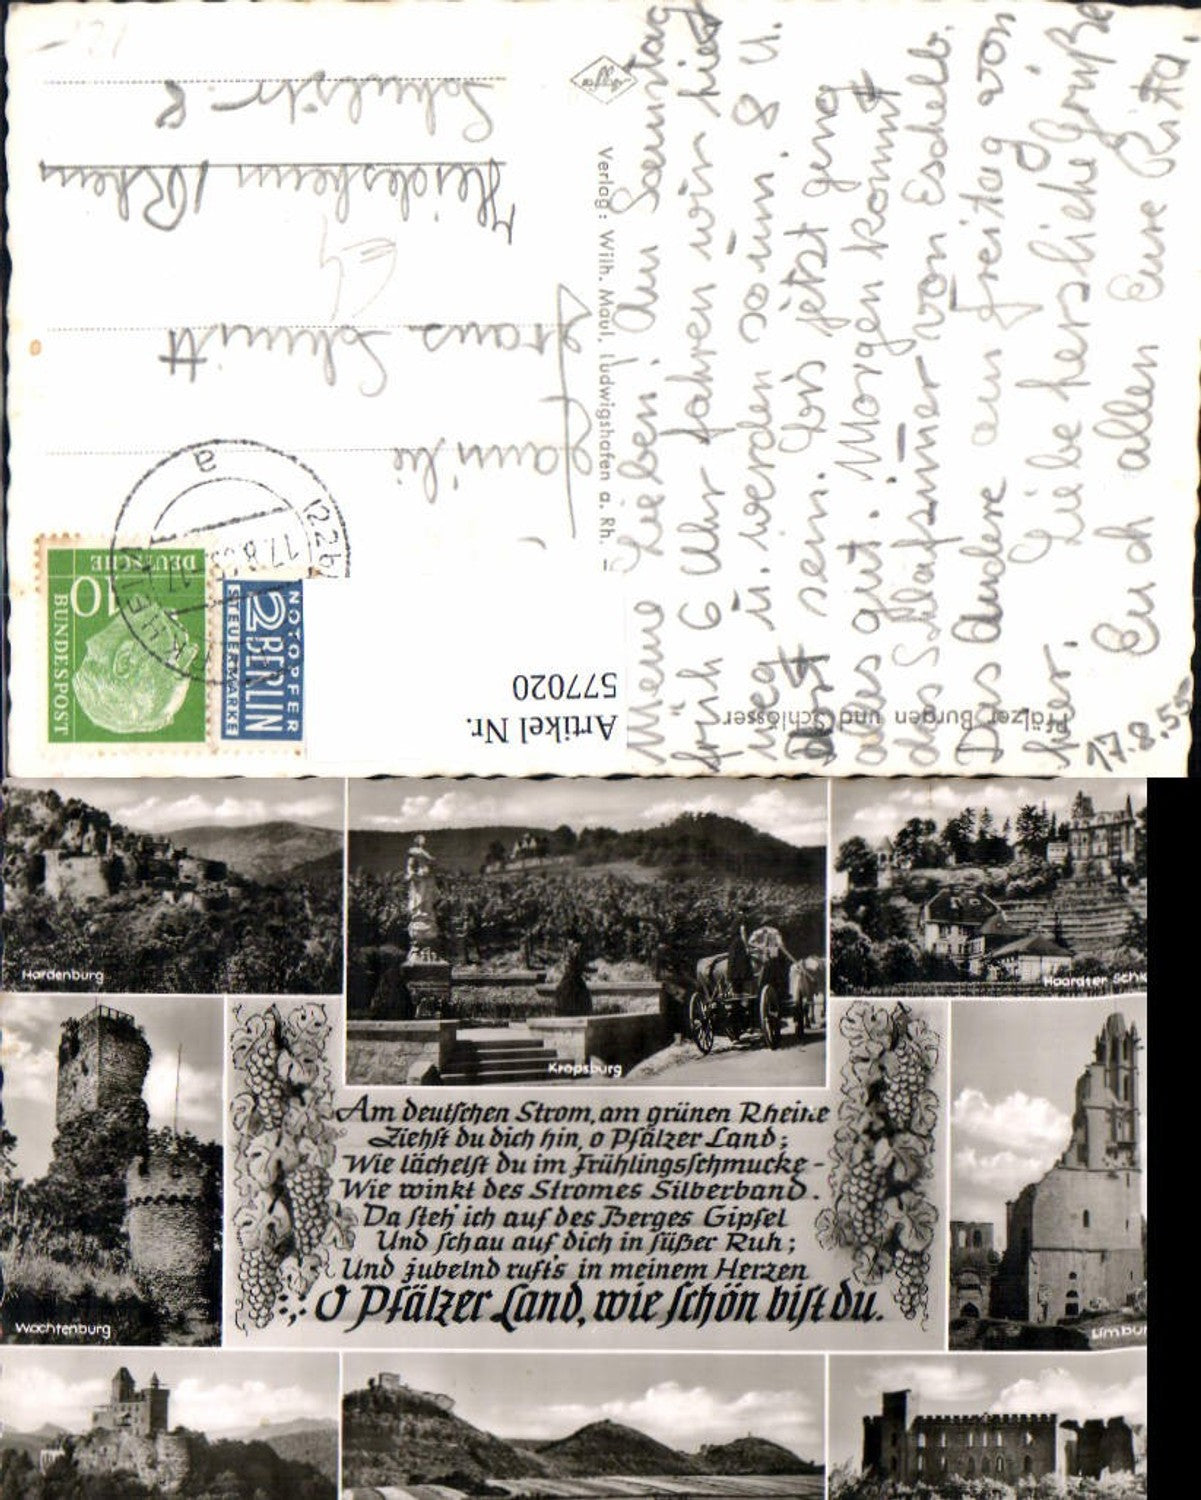 Schulstr. 8
Heidesheim / Rhein
Franz Schmitt
Familie
a
(22b)
17.8.55
DEUTSCHE
BUNDESPOST
10
NOTOPFER
2 BERLIN
STEUERMARKE
Artikel Nr.
577020
Verlag: Wilh. Maul, Ludwigshafen a. Rh. –
Pfälzer Burgen und Schlösser
Meine Lieben! Am Sonntag
früh 6 Uhr fahren wir hier
weg u. werden so um 8 U.
dort sein. Bis jetzt geng
alles gut. Morgen kommt
das Schlafzimmer von Eschelb.
Das Andere am Freitag von
hier. Liebe herzliche Grüße
Euch allen Eure Rita.
17.8.55
Hardenburg
Kropsburg
Haardter Schl
Wachtenburg
Limbur
Am deutschen Strom, am grünen Rheine
Ziehst du dich hin, o Pfälzer Land;
Wie lächelst du im Frühlingsschmucke –
Wie winkt des Stromes Silberband.
Da steh' ich auf des Berges Gipfel
Und schau auf dich in süßer Ruh;
Und jubelnd ruft's in meinem Herzen
O Pfälzer Land, wie schön bist du.